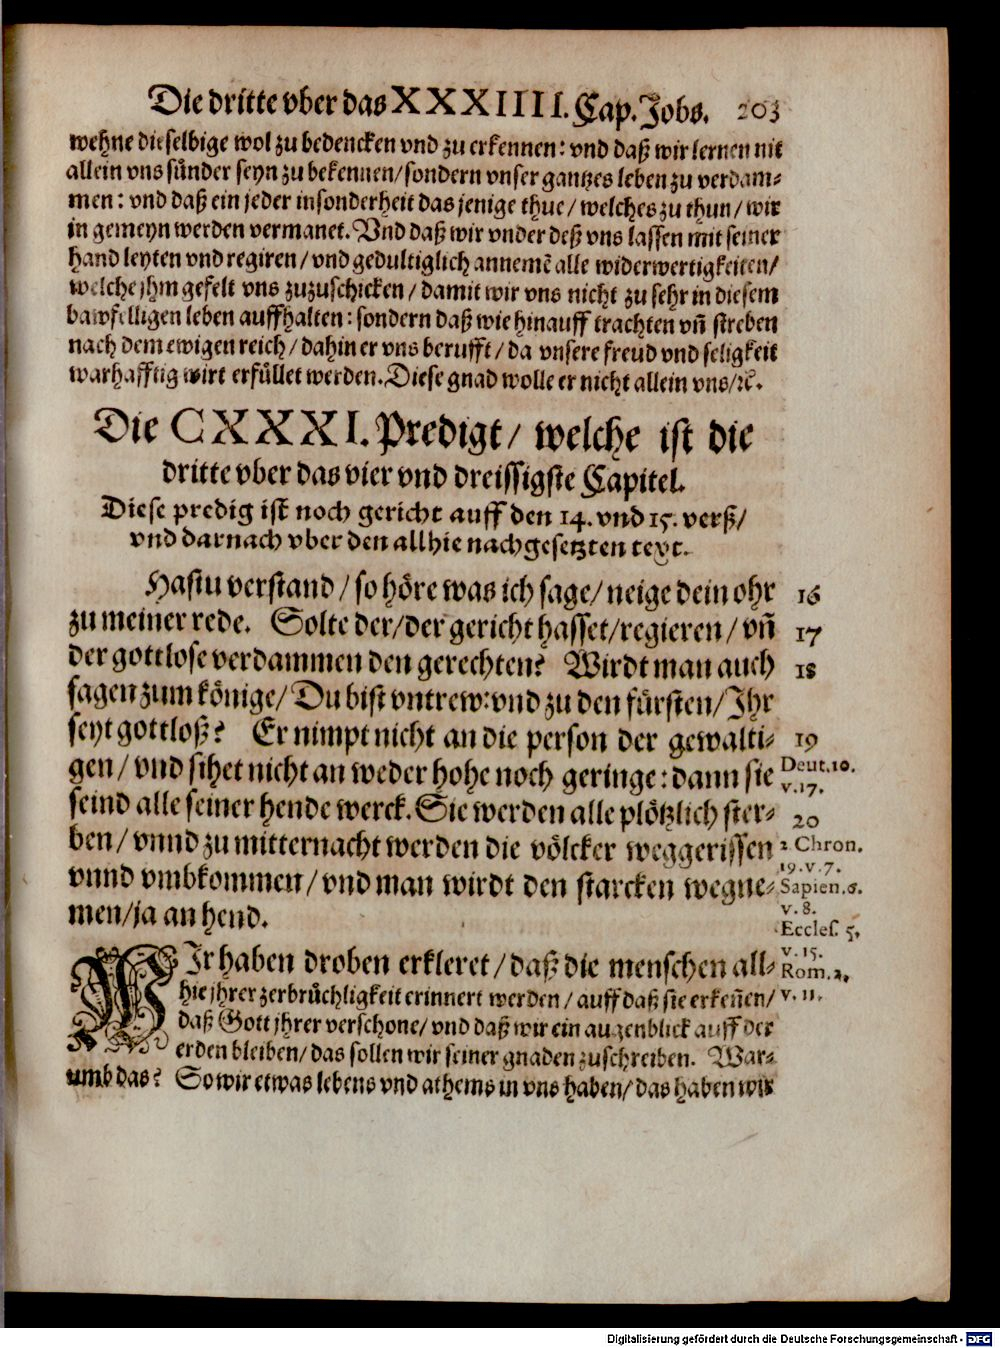 Die dritte vber das XXXIIII. Cap. Jobs. 203
wehne dieselbige wol zu bedencken vnd zu erkennen: vnd daß wir lernen nit
allein vns sünder seyn zu bekennen/sondern vnser gantzes leben zu verdam-
men: vnd daß ein jeder insonderheit das jenige thue/ welches zu thun/ wir
in gemeyn werden vermanet. Vnd daß wir vnder deß vns lassen mit seiner
hand leyten vnd regiren/ vnd gedultiglich annemē alle widerwertigkeiten/
welche jhm gefelt vns zuzuschicken/ damit wir vns nicht zu sehr in diesem
bawfelligen leben auffhalten: sondern daß wie hinauff trachten vñ streben
nach dem ewigen reich/ dahin er vns berufft/ da vnsere freud vnd seligkeit
warhafftig wirt erfüllet werden. Diese gnad wolle er nicht allein vns/ꝛc.
Die CXXXI. Predigt/ welche ist die
dritte vber das vier vnd dreissigste Capitel.
Diese predig ist noch gericht auff den 14. vnd 15. verß/
vnd darnach vber den allhie nachgesetzten text.
Hastu verstand/ so höre was ich sage/ neige dein ohr 16
zu meiner rede. Solte der/der gericht hasset/regieren/ vñ 17
der gottlose verdammen den gerechten? Wirdt man auch 18
sagen zum könige/ Du bist vntrew: vnd zu den fürsten/ Ihr
seyt gottloß? Er nimpt nicht an die person der gewalti- 19
gen/ vnd sihet nicht an weder hohe noch geringe: dann sie Deut. 10.
v. 17.
seind alle seiner hende werck. Sie werden alle plötzlich ster- 20
ben/ vnnd zu mitternacht werden die völcker weggerissen 2 Chron.
19. v. 7.
vnnd vmbkommen/ vnd man wirdt den starcken wegne- Sapien. 6.
v. 8.
men/ja an hend. Eccles. 5.
v. 15.
WIr haben droben erkleret/ daß die menschen all- Rom. 2.
hie jhrer zerbrüchligkeit erinnert werden/ auff daß sie erkeñen/ v. 11.
daß Gott jhrer verschone/ vnd daß wir ein augenblick auff der
erden bleiben/ das sollen wir seiner gnaden zuschreiben. War-
umb das? So wir etwas lebens vnd athems in vns haben/ das haben wir
Digitalisierung gefördert durch die Deutsche Forschungsgemeinschaft - DFG